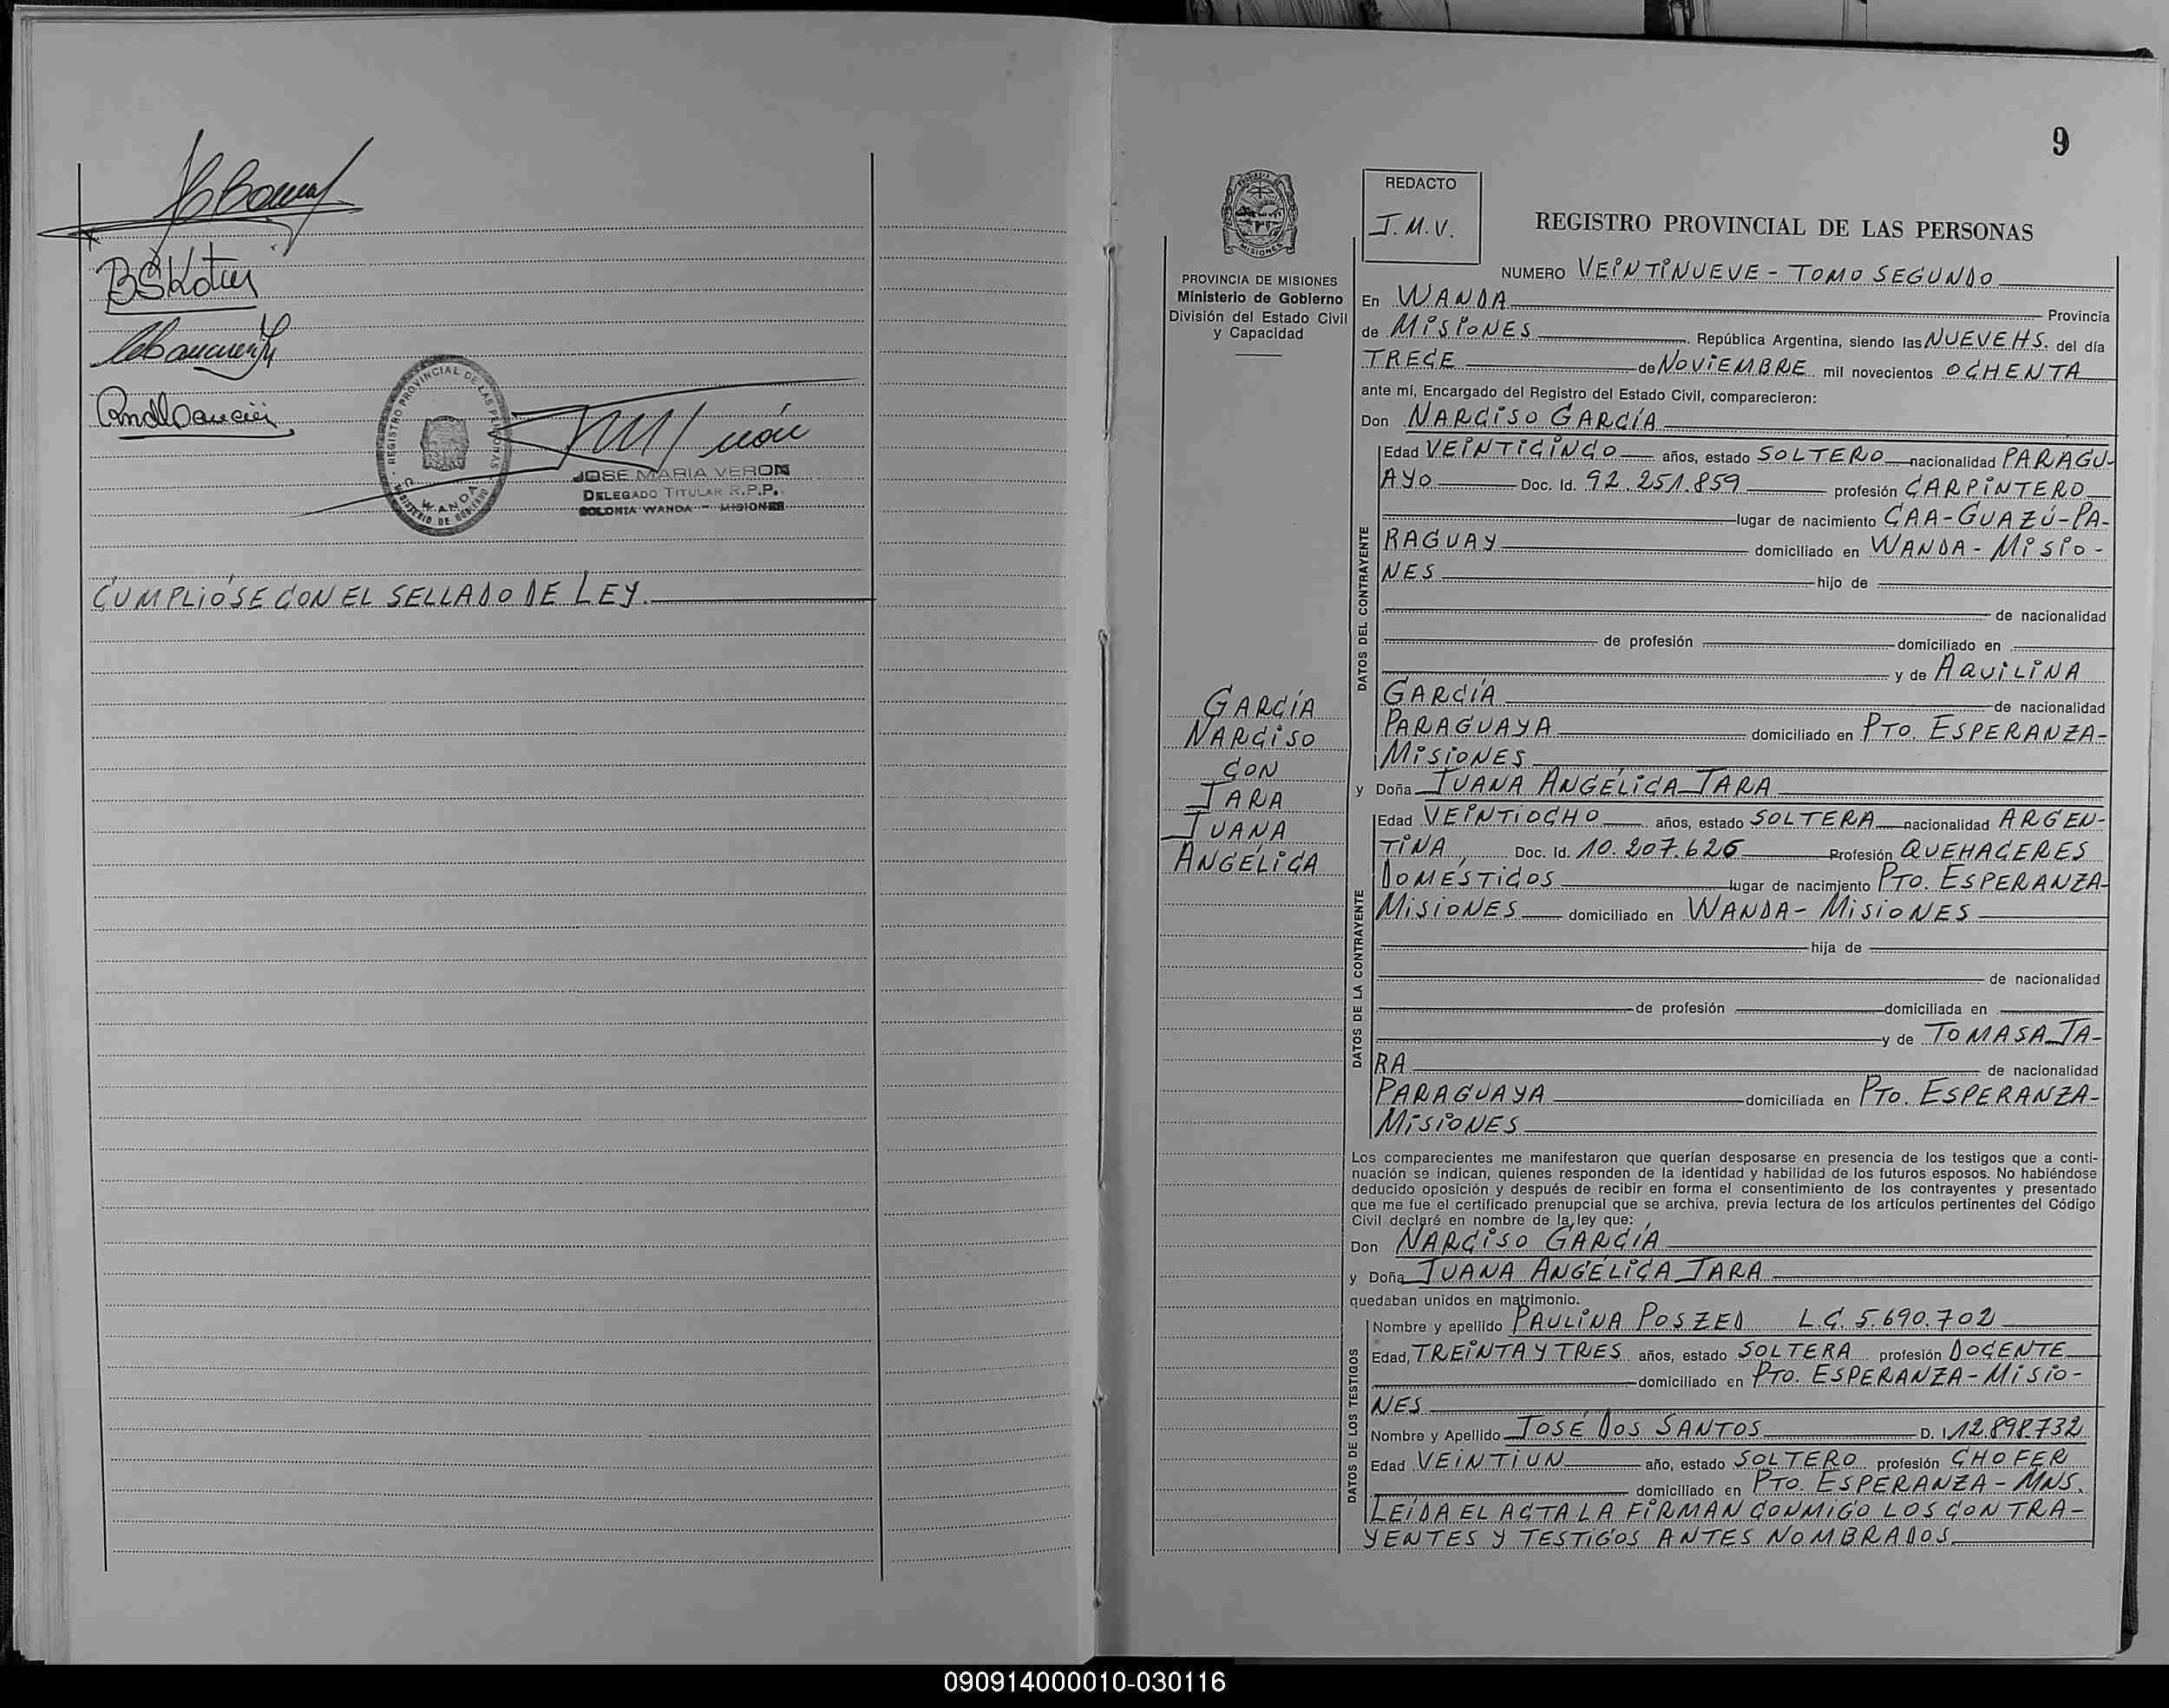 BSKotur
REGISTRO PROVINCIAL DE LAS PERSONAS
WANDA
MINISTERIO DE GOBIERNO
JOSE MARIA VERON
DELEGADO TITULAR R.P.P.
COLONIA WANDA - MISIONES
CUMPLIÓSE CON EL SELLADO DE LEY.
9
PROVINCIA DE MISIONES
Ministerio de Gobierno
División del Estado Civil
y Capacidad
GARCÍA
NARCISO
CON
JARA
JUANA
ANGÉLICA
REDACTO
J.M.V.
REGISTRO PROVINCIAL DE LAS PERSONAS
NUMERO VEINTINUEVE - TOMO SEGUNDO
En WANDA Provincia
de MISIONES República Argentina, siendo las NUEVE HS. del día
TRECE de NOVIEMBRE mil novecientos OCHENTA
ante mí, Encargado del Registro del Estado Civil, comparecieron:
Don NARCISO GARCÍA
DATOS DEL CONTRAYENTE
Edad VEINTICINCO años, estado SOLTERO nacionalidad PARAGU-
AYO Doc. Id. 92.251.859 profesión CARPINTERO
lugar de nacimiento CAA-GUAZÚ-PA-
RAGUAY domiciliado en WANDA - MISIO-
NES hijo de
de nacionalidad
de profesión domiciliado en
y de AQUILINA
GARCÍA de nacionalidad
PARAGUAYA domiciliado en PTO. ESPERANZA-
MISIONES
y Doña JUANA ANGÉLICA JARA
DATOS DE LA CONTRAYENTE
Edad VEINTIOCHO años, estado SOLTERA nacionalidad ARGEN-
TINA Doc. Id. 10.207.626 Profesión QUEHACERES
DOMÉSTICOS lugar de nacimiento PTO. ESPERANZA-
MISIONES domiciliado en WANDA - MISIONES
hija de
de nacionalidad
de profesión domiciliada en
y de TOMASA JA-
RA de nacionalidad
PARAGUAYA domiciliada en PTO. ESPERANZA-
MISIONES
Los comparecientes me manifestaron que querían desposarse en presencia de los testigos que a conti-
nuación se indican, quienes responden de la identidad y habilidad de los futuros esposos. No habiéndose
deducido oposición y después de recibir en forma el consentimiento de los contrayentes y presentado
que me fue el certificado prenupcial que se archiva, previa lectura de los artículos pertinentes del Código
Civil declaré en nombre de la ley que:
Don NARCISO GARCÍA
y Doña JUANA ANGÉLICA JARA
quedaban unidos en matrimonio.
DATOS DE LOS TESTIGOS
Nombre y apellido PAULINA POSZED L.C. 5.690.702
Edad, TREINTA Y TRES años, estado SOLTERA profesión DOCENTE
domiciliado en PTO. ESPERANZA - MISIO-
NES
Nombre y Apellido JOSÉ DOS SANTOS D. I. 12.898.732
Edad VEINTIUN año, estado SOLTERO profesión CHOFER
domiciliado en PTO. ESPERANZA - MNS.
LEÍDA EL ACTA LA FIRMAN CONMIGO LOS CONTRA-
YENTES Y TESTIGOS ANTES NOMBRADOS
090914000010-030116